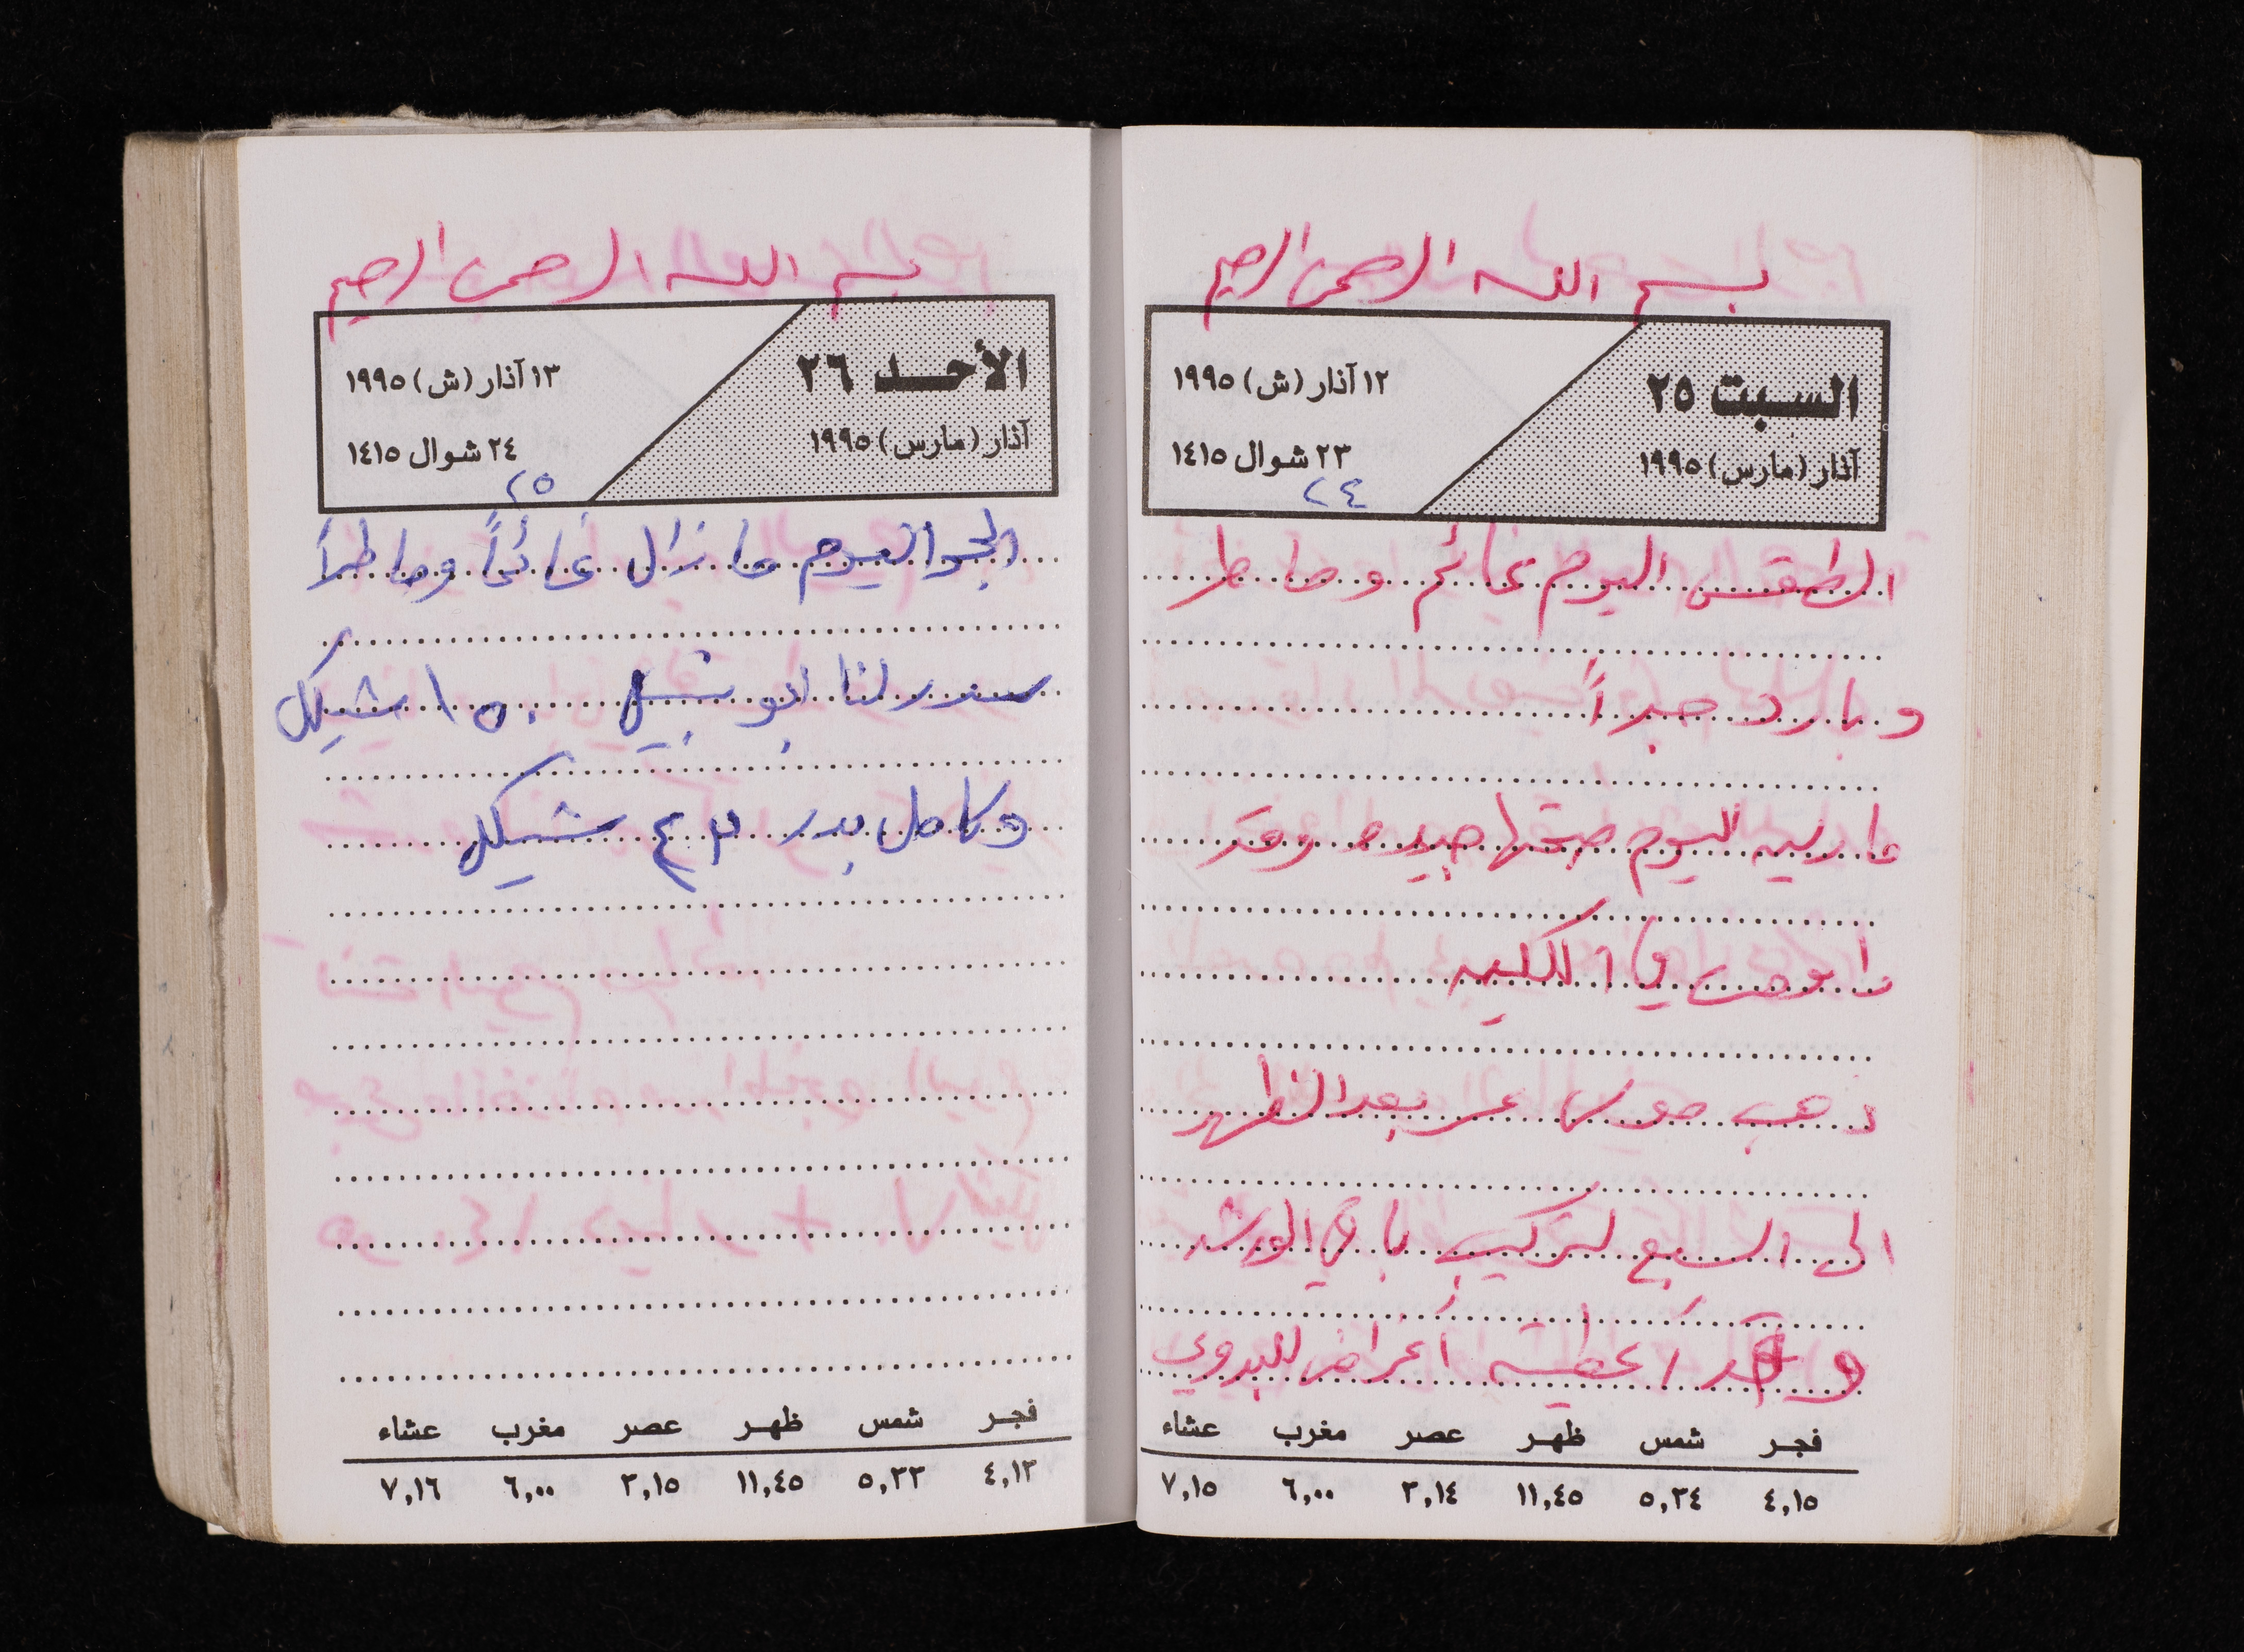 بسم الله الرحمن الرحيم
السبت ٢٥
آذار (مارس) ١٩٩٥
١٢ آذار (ش) ١٩٩٥
٢٣ شوال ١٤١٥
٢٤
الطقس اليوم غائم وماطر
وبارد جداً
ماريه اليوم صحتها جيده وقد
داومت في الكليه
ذهب موسى عصر بعد الظهر
الى السبع لتركيب باقي الورشه
وقد اعطيته اغراض للبدوي
فجر شمس ظهر عصر مغرب عشاء
٤,١٥ ٥,٣٤ ١١,٤٥ ٣,١٤ ٦,٠٠ ٧,١٥
بسم الله الرحمن الرحيم
الأحد ٢٦
آذار (مارس) ١٩٩٥
١٣ آذار (ش) ١٩٩٥
٢٤ شوال ١٤١٥
٢٥
الجو اليوم ما زال غائماً وماطراً
سدد لنا ابو نبيل ١٥٠ شيكل
وكامل بدر ٤٣ شيكل
فجر شمس ظهر عصر مغرب عشاء
٤,١٣ ٥,٣٣ ١١,٤٥ ٣,١٥ ٦,٠٠ ٧,١٦